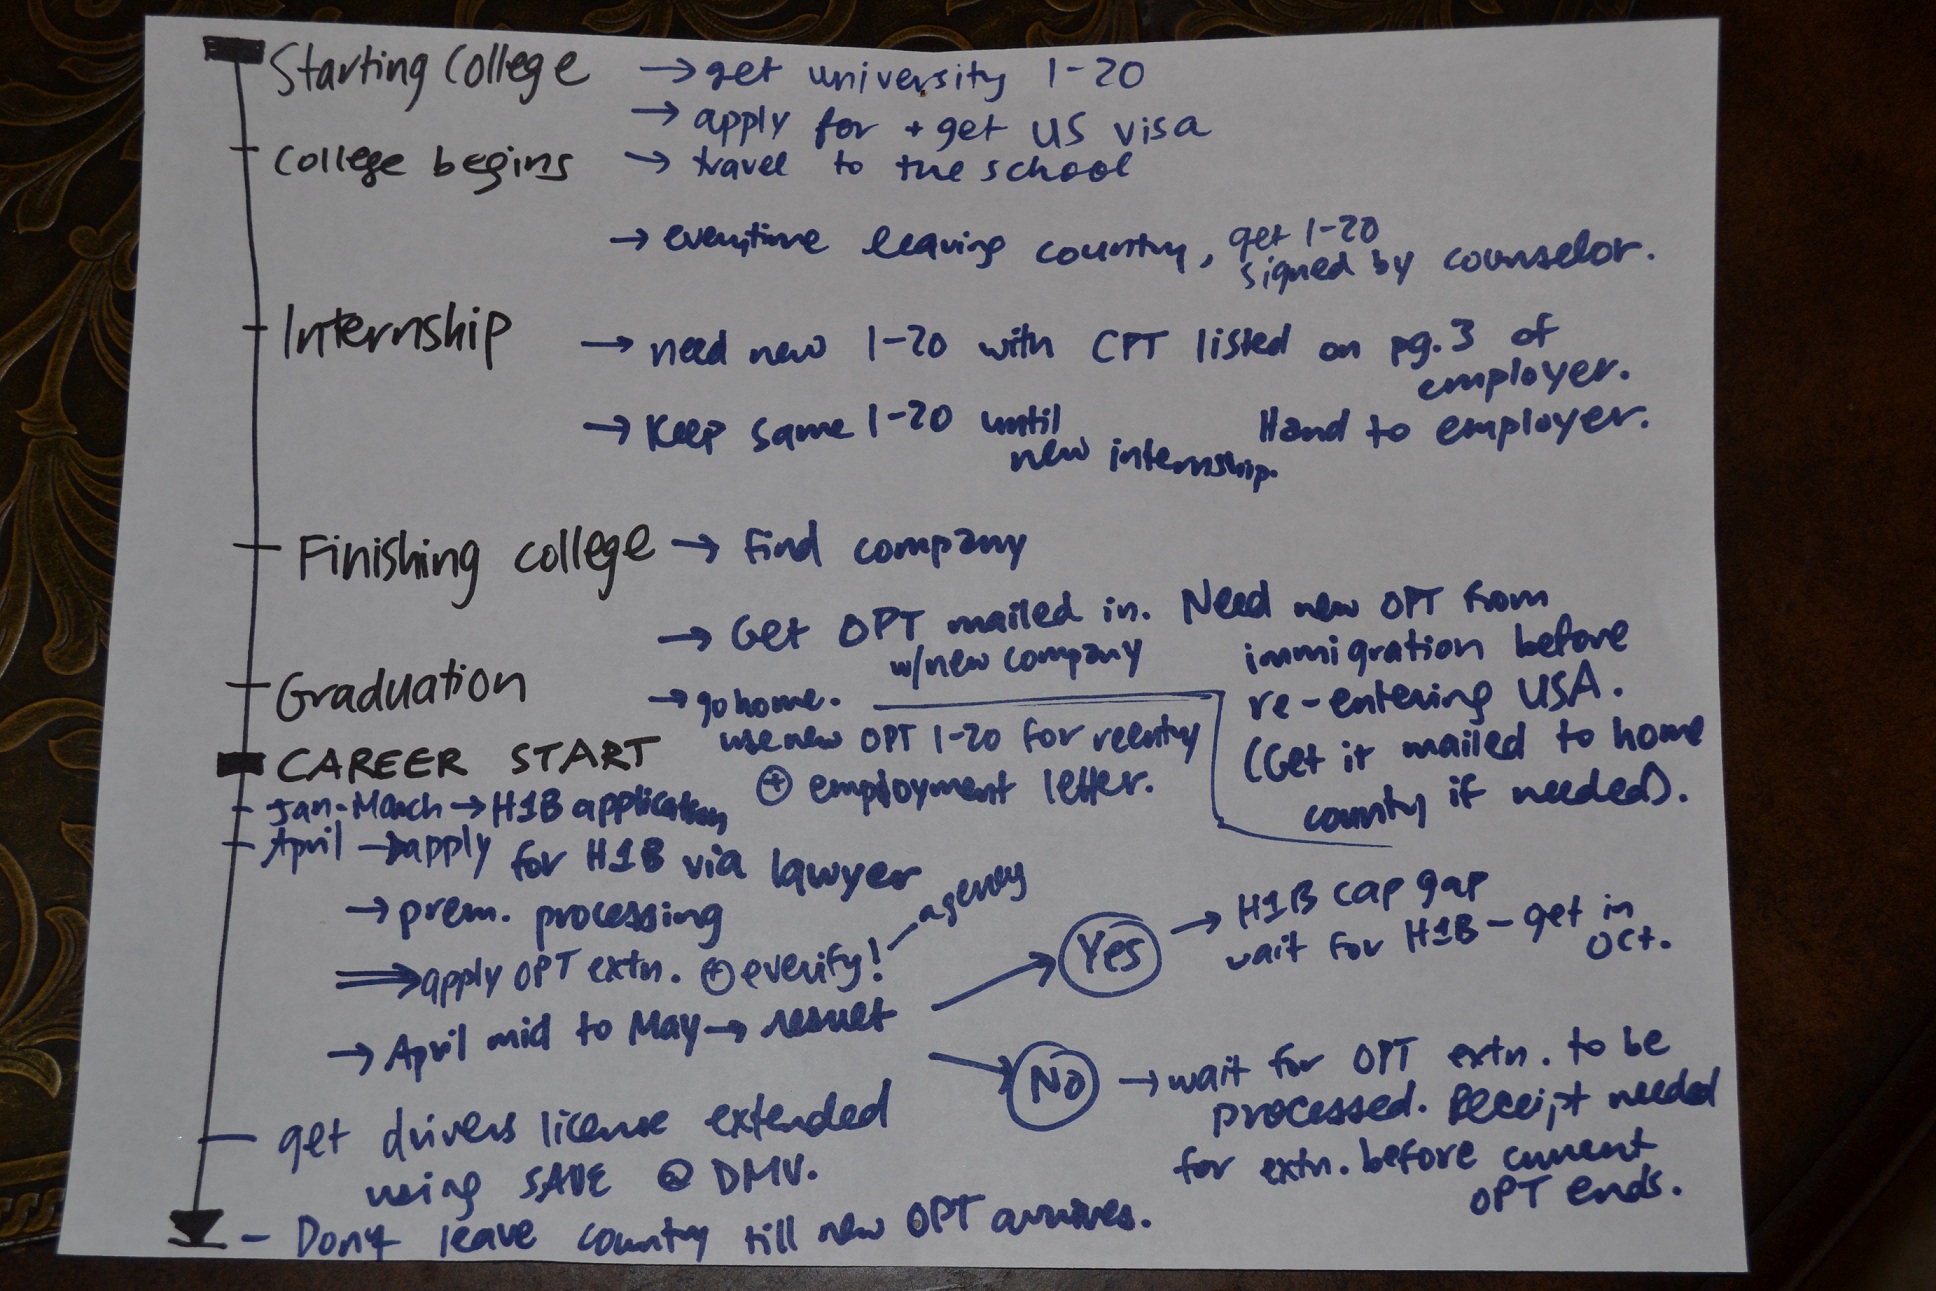 Starting College → get university I-20
→ apply for + get US visa
College begins → travel to the school
→ everytime leaving country, get I-20
signed by counselor.
Internship → need new I-20 with CPT listed on pg. 3 of
employer.
→ Keep same I-20 until Hand to employer.
new internship.
Finishing college → Find company
→ Get OPT mailed in. Need new OPT from
w/new company immigration before
Graduation → go home. re-entering USA.
use new OPT I-20 for reentry (Get it mailed to home
CAREER START ⊕ employment letter. county if needed).
Jan-March → H1B application
April → apply for H1B via lawyer
→ prem. processing
⇒ apply OPT extn. ⊕ everify! - agency
→ April mid to May → result
Yes → H1B cap gap
wait for H1B - get in
Oct.
No → wait for OPT extn. to be
processed. Receipt needed
for extn. before current
OPT ends.
get drivers license extended
using SAVE @ DMV.
- Dont leave country till new OPT arrives.